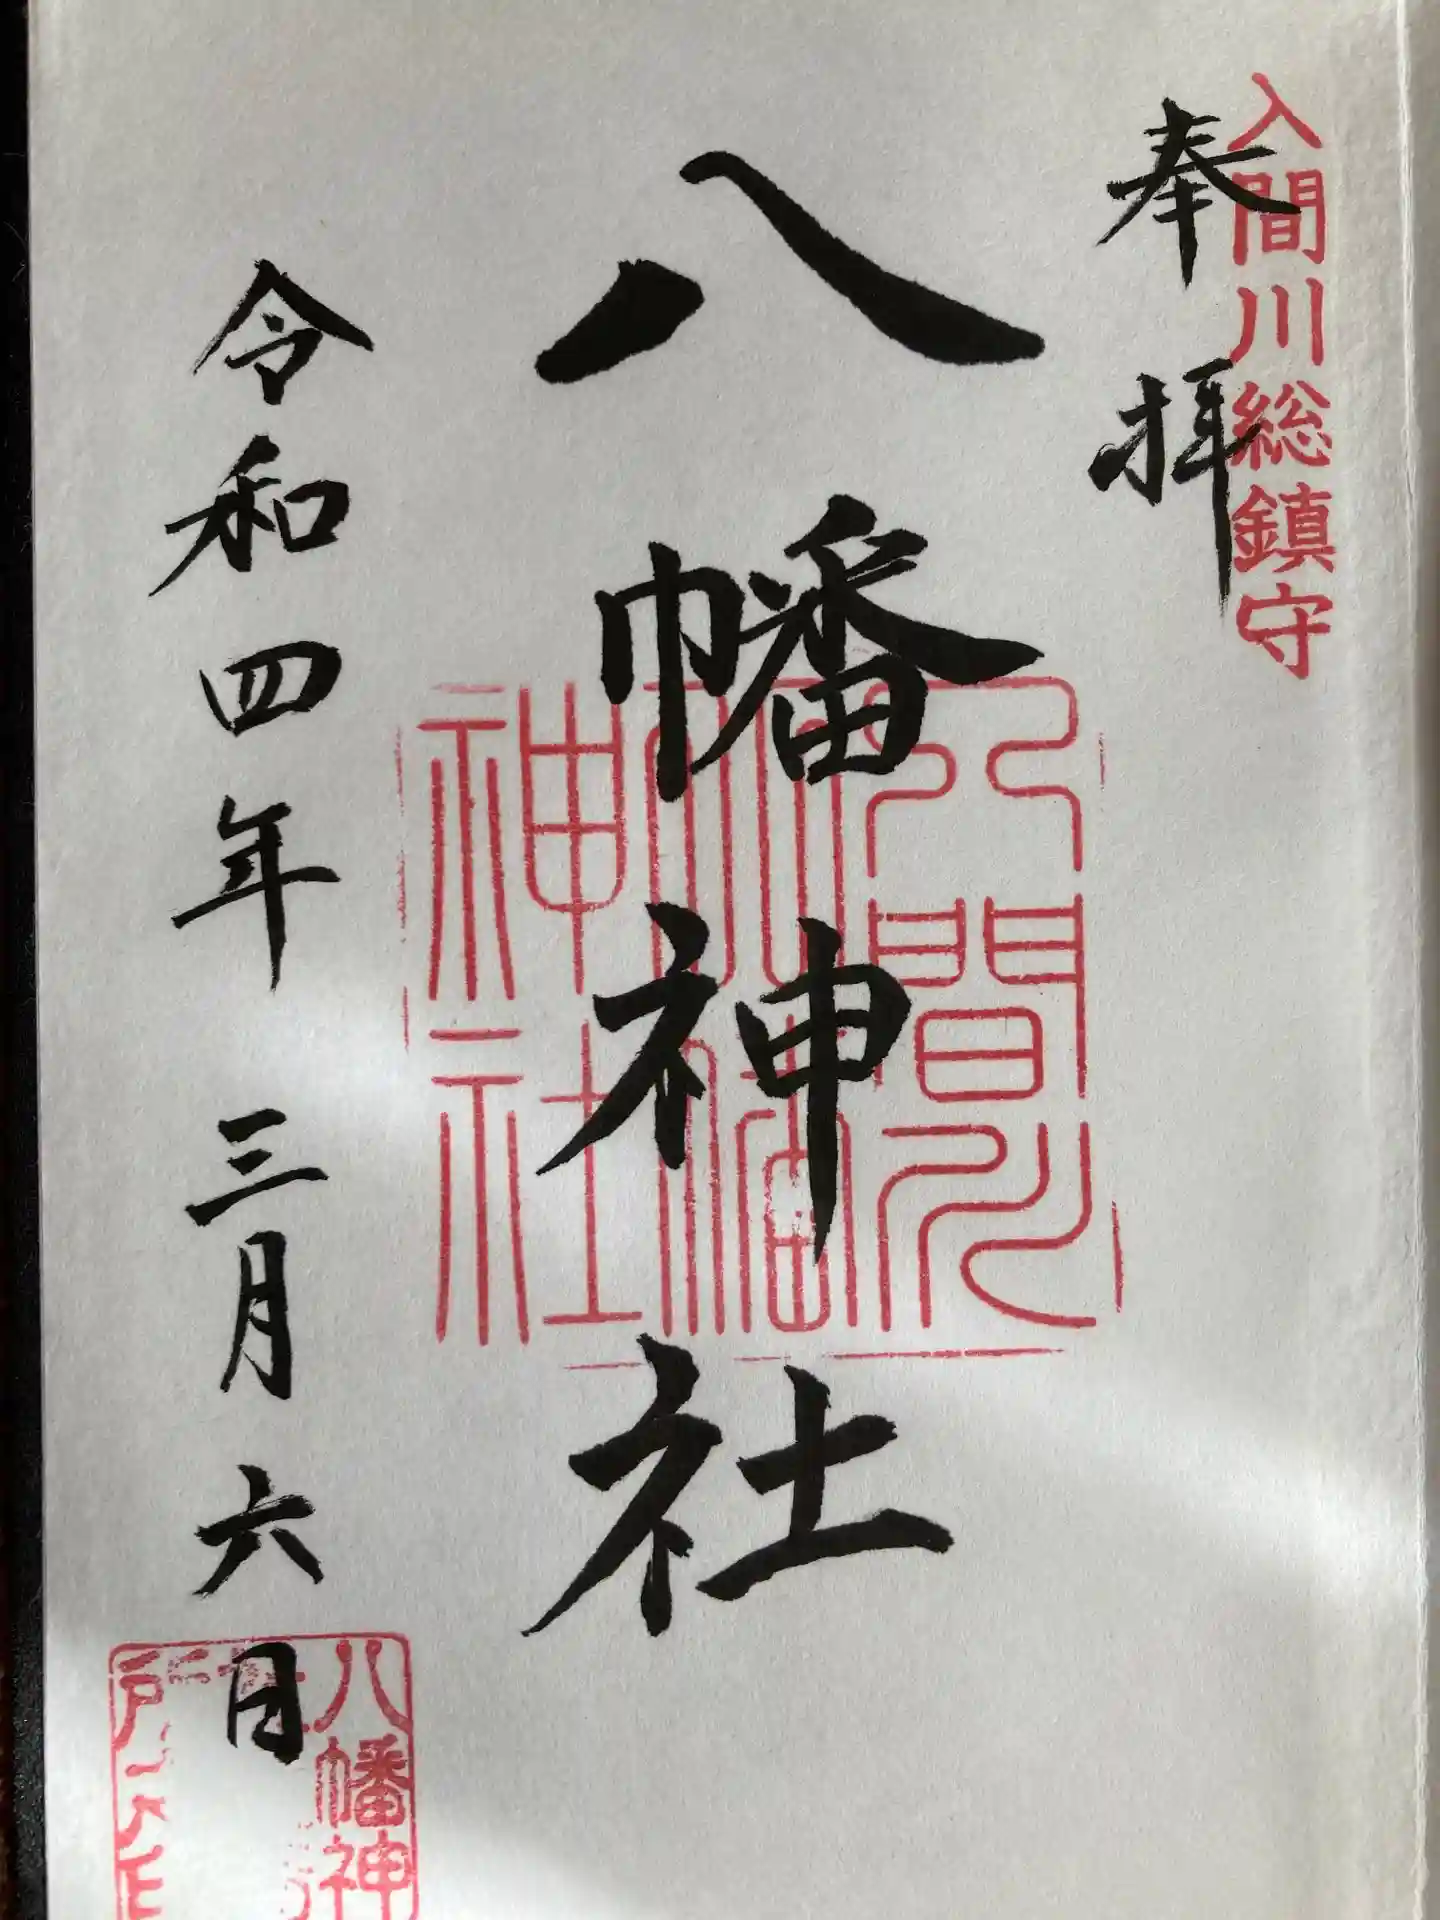 入間川総鎮守
奉拝
八幡神社
入間川
八幡
神社
令和四年三月六日
八幡神